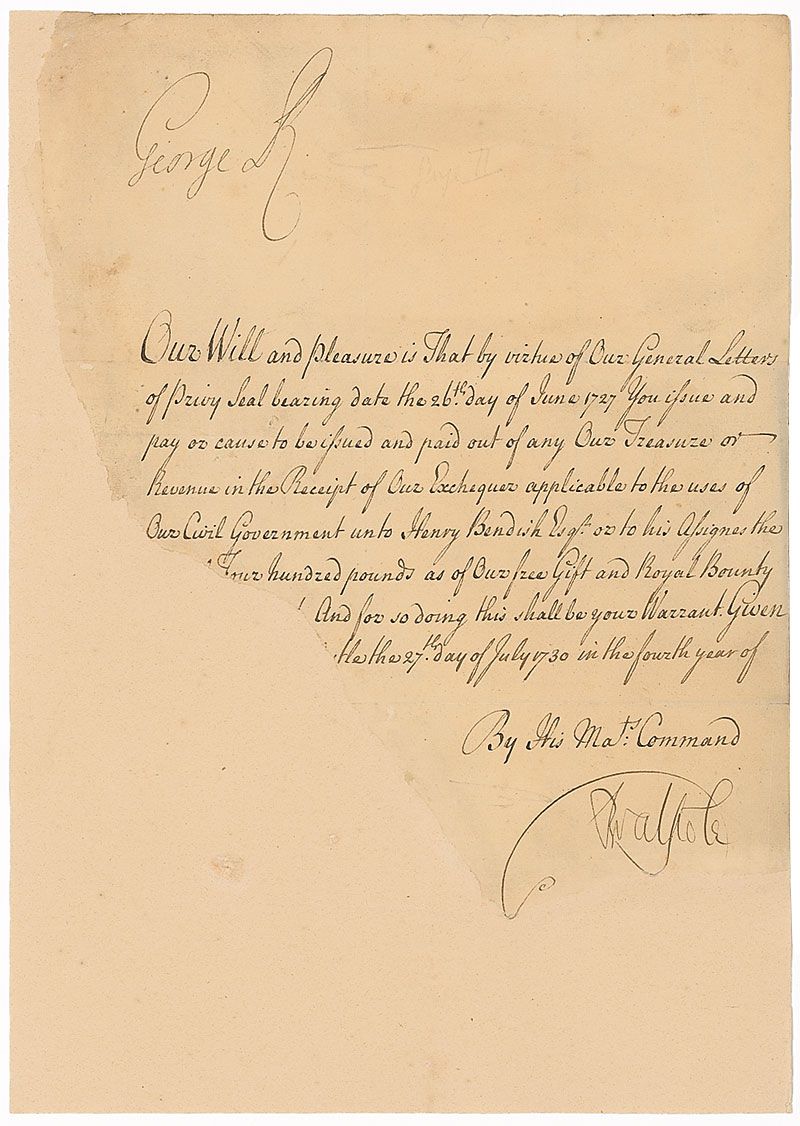 George R
Our Will and Pleasure is That by virtue of Our General Letters
of Privy Seal bearing date the 26th. day of June 1727 You issue and
pay or cause to be issued and paid out of any Our Treasure or
Revenue in the Receipt of Our Exchequer applicable to the uses of
Our Civil Government unto Henry Bendish Esqr. or to his Assignes the
Four hundred pounds as of Our free Gift and Royal Bounty
And for so doing this shall be your Warrant. Given
stle the 27th. day of July 1730 in the fourth year of
By His Mats. Command
RWalpole